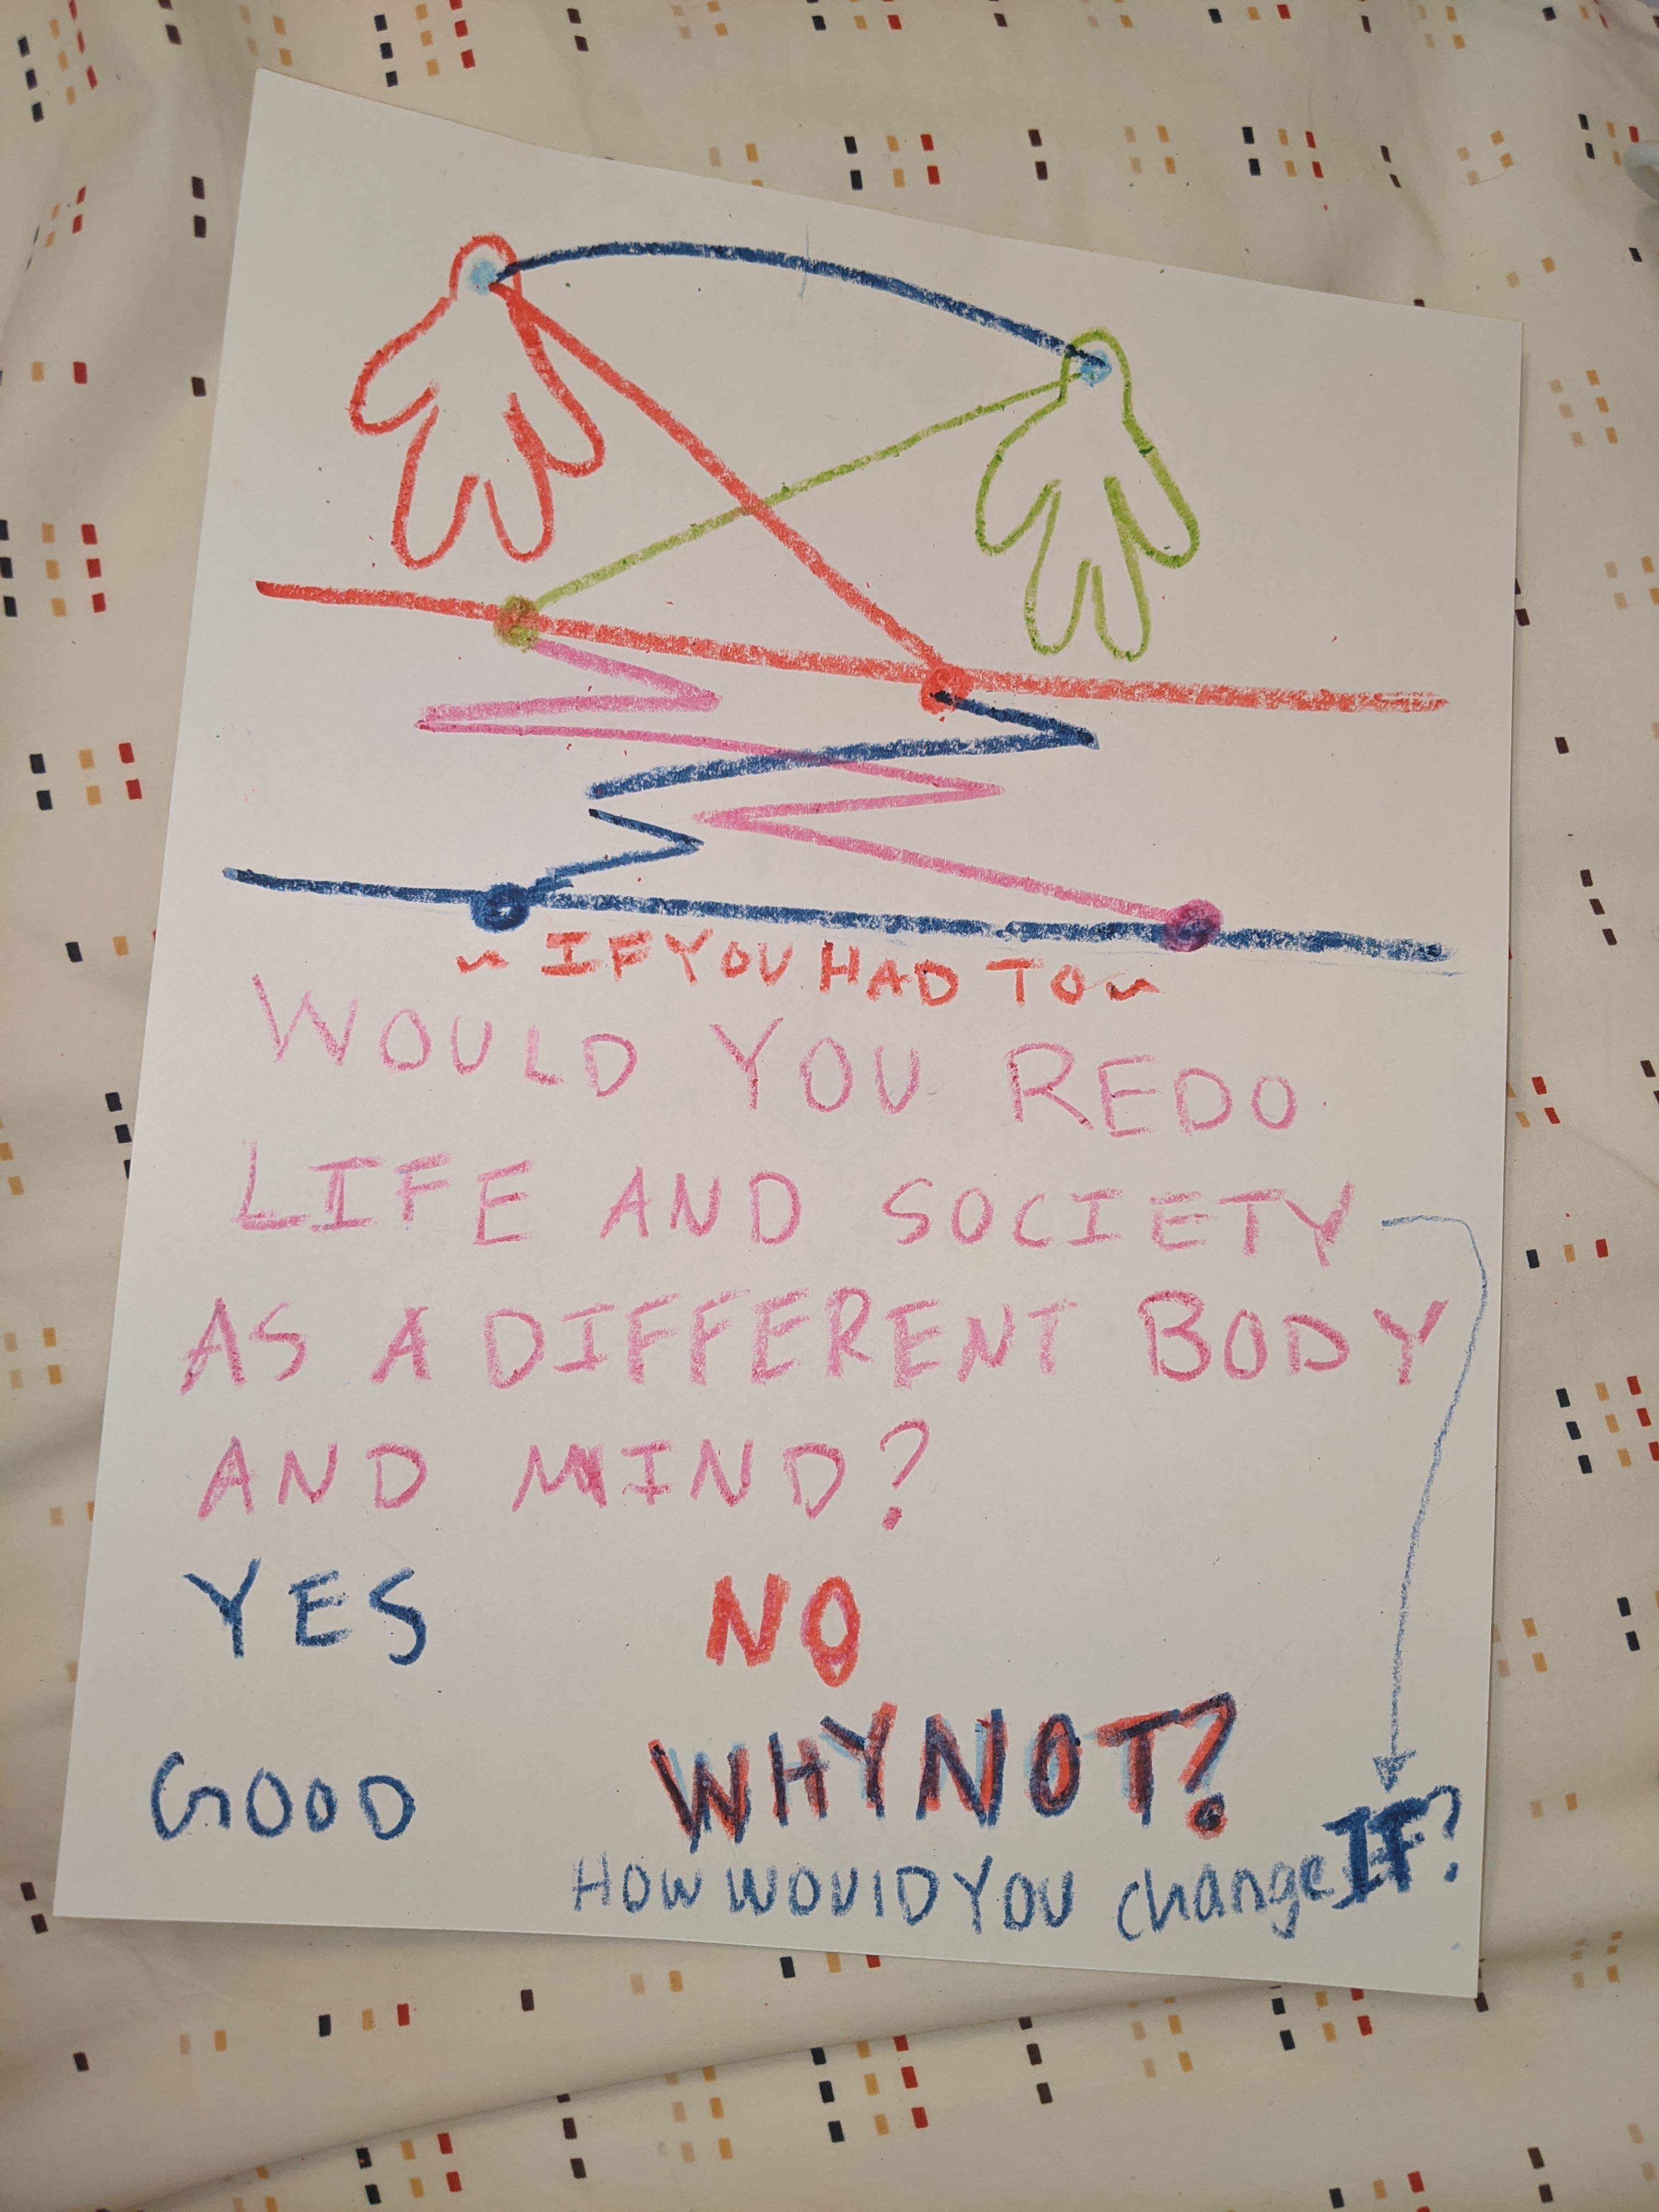 ~ IF YOU HAD TO ~
WOULD YOU REDO
LIFE AND SOCIETY
AS A DIFFERENT BODY
AND MIND?
YES NO
GOOD WHY NOT?
HOW WOULD YOU change IF?